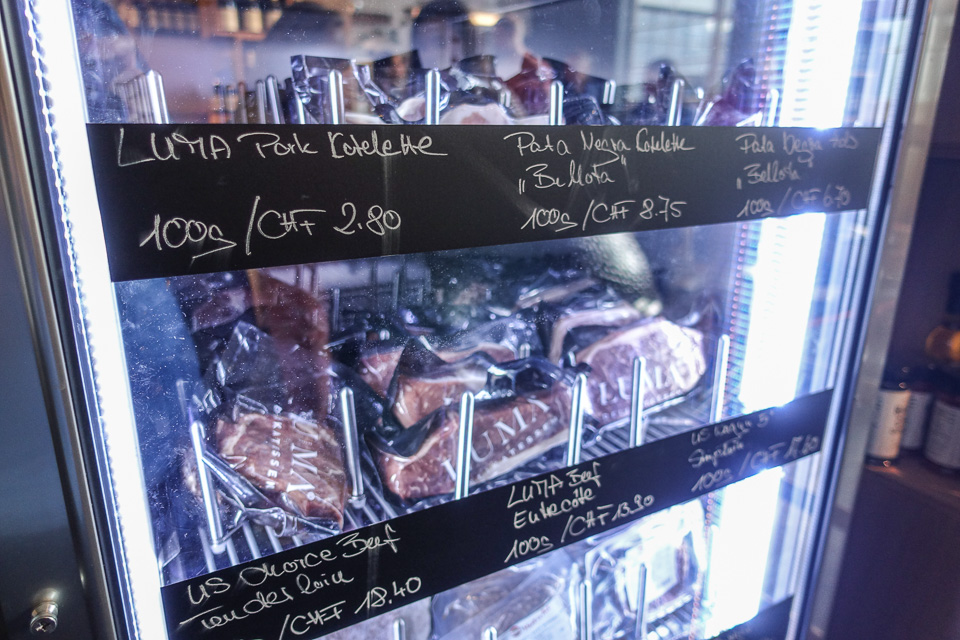 LUMA Pork Kotelette
100g /CHF 2.80
Pata Negra Kotelette
„Bellota"
100g /CHF 8.75
Pata Negra
„Bellota"
100g /CHF 6.70
LUMA
LUMA
LUMA
US choice Beef
Tenderloin
/CHF 18.40
LUMA Beef
Entrecote
100g /CHF 13.90
US
100g /CHF